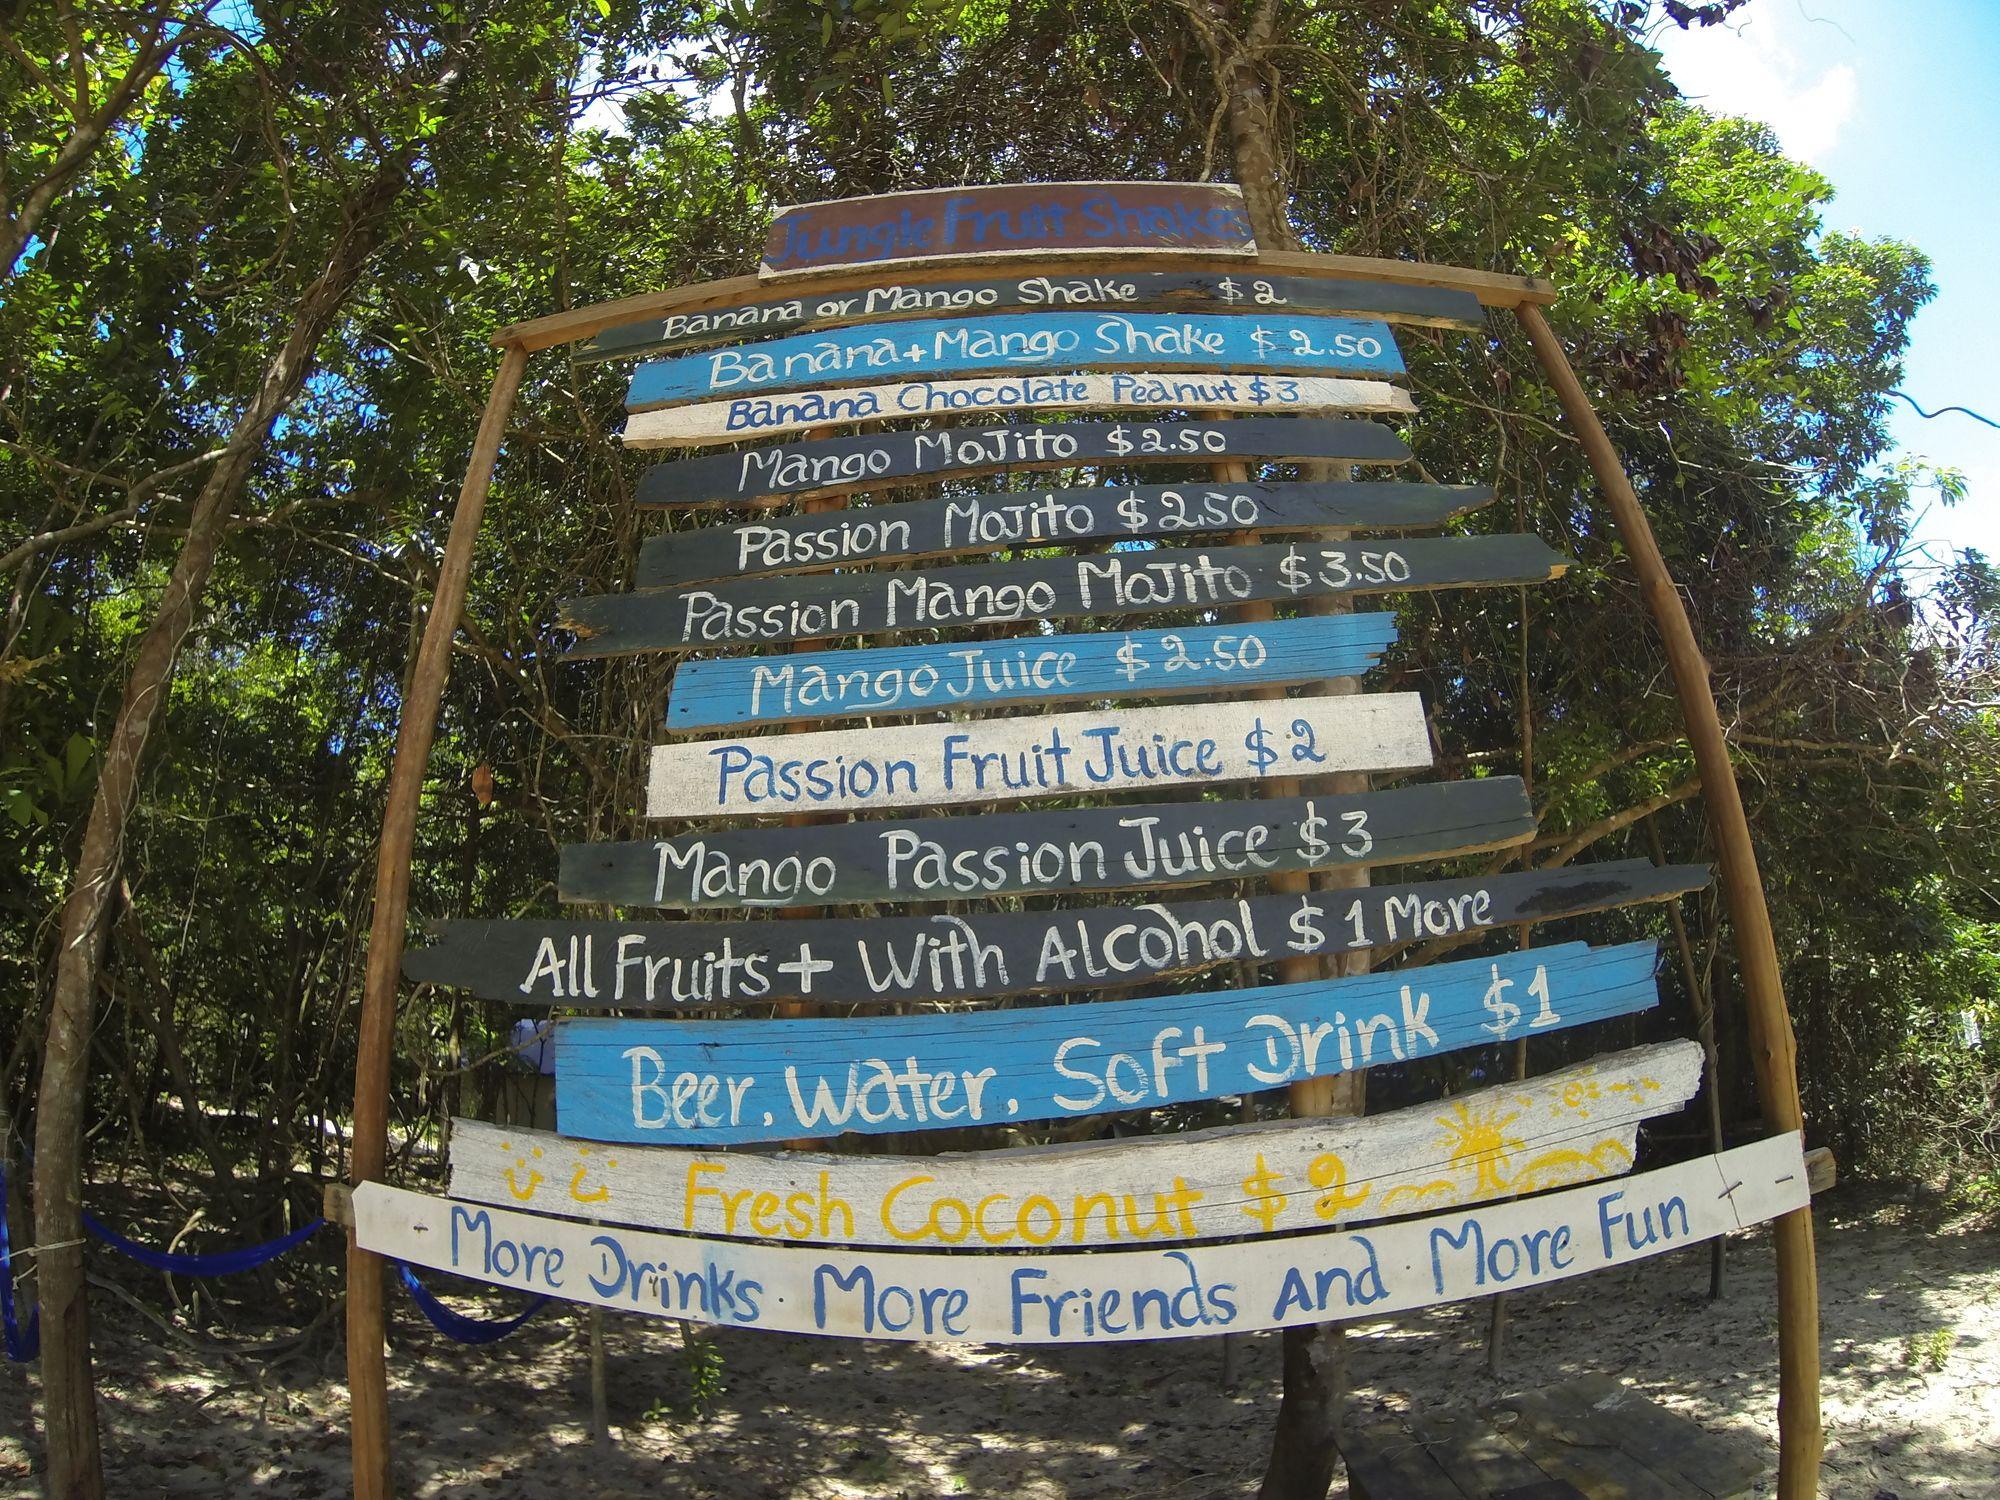 Jungle Fruit Shakes
Banana or Mango Shake $2
Banana+Mango Shake $2.50
Banana Chocolate Peanut $3
Mango MoJito $2.50
Passion MoJito $2.50
Passion Mango MoJito $3.50
Mango Juice $2.50
Passion Fruit Juice $2
Mango Passion Juice $3
All Fruits + With Alcohol $1 More
Beer, Water, Soft Drink $1
Fresh Coconut $2
More Drinks. More Friends And More Fun